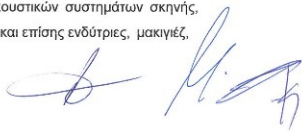 κουστικών συστημάτων σκηνής,
και επίσης ενδύτριες, μακιγιέζ,